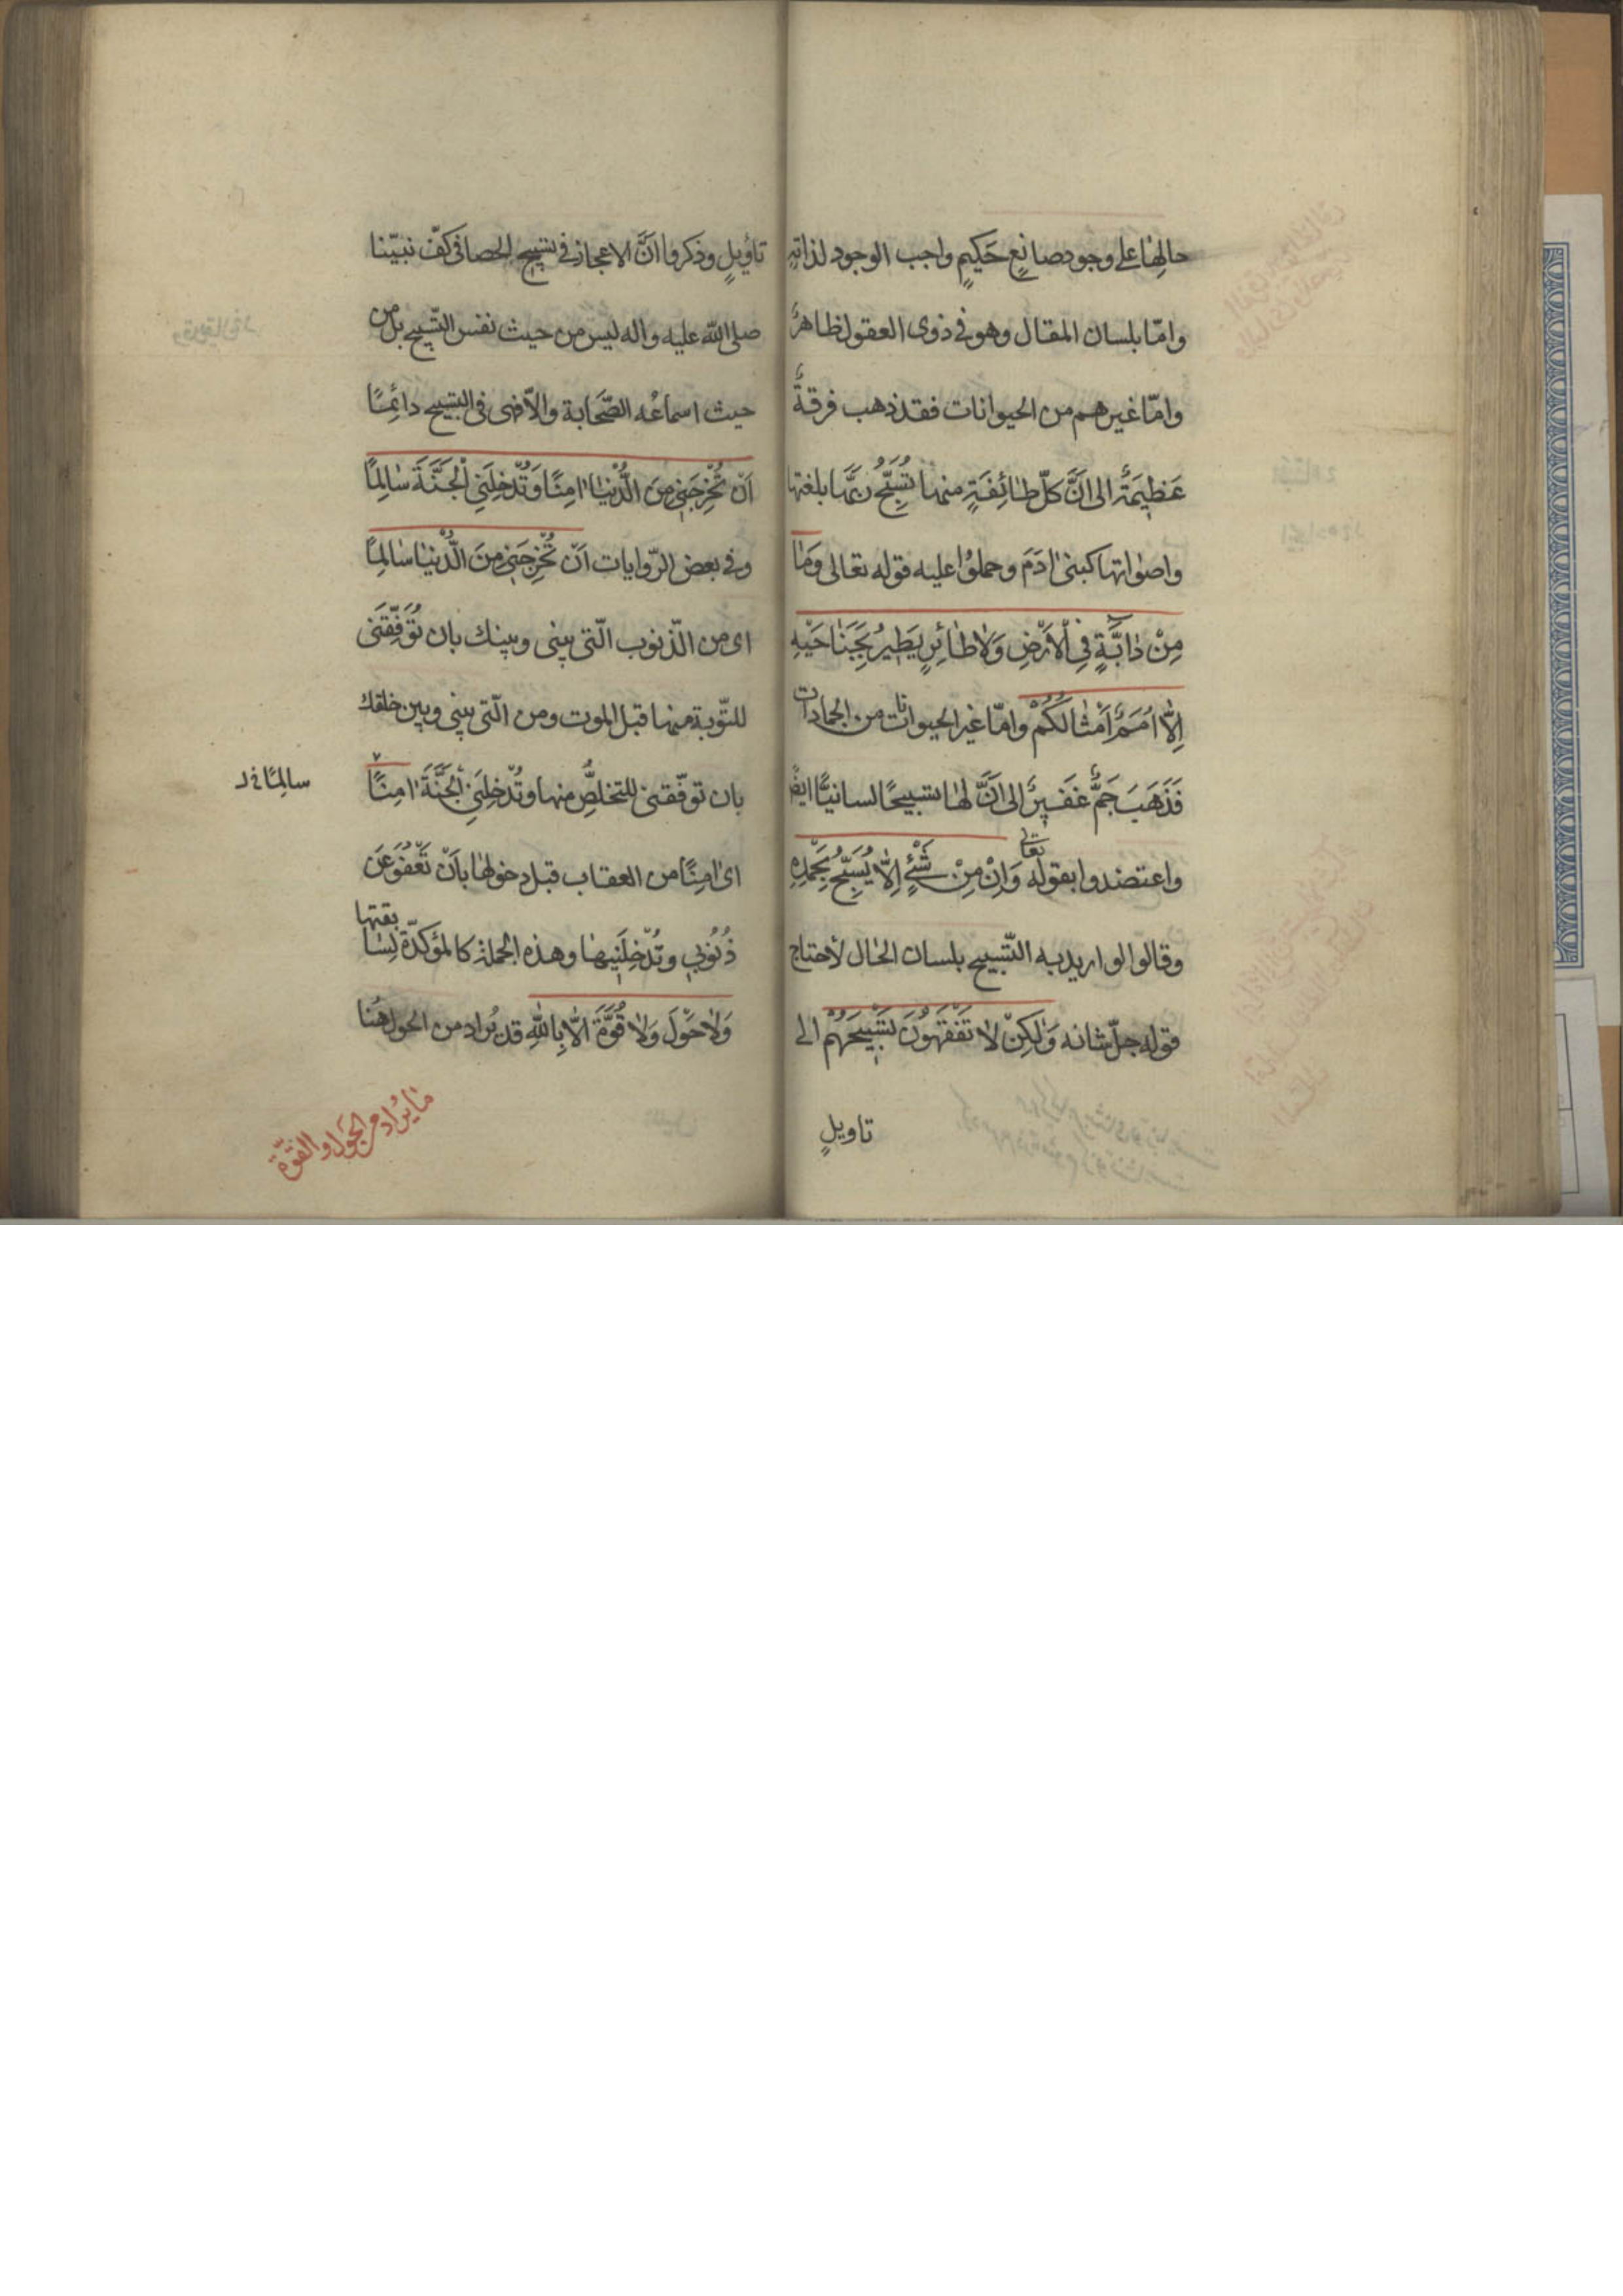 حالِهٰا على وجود صانِعٍ حَكيمٍ واجب الوجود لذاتِهِ
وامّا بلسان المقال وهو فى ذوى العقول ظاهرٌ
وامّا غيرهم من الحيوانات فقد ذهب فرقةٌ
عَظِيمَةٌ الى انَّ كلّ طٰائِفَةٍ منها تُسَبِّحُ ربَّها بلغتها
واصْواتها كبنىٰ اٰدَمَ وحملوُا عليه قوله تعالى وَمٰا
مِنْ دٰابَّةٍ فِى اْلاَرْضِ وَلاٰ طٰائِرٍ يَطيرُ بِجَنٰاحَيْهِ
اِلاّٰ اُمَمٌ اَمْثٰالُكُمْ وامّا غير الحيوانات من الجمادات
فَذَهَبَ جَمٌّ غَفيرٌ الى انَّ لهٰا تسبيحًا لسانيًّا ايضًا
واعتضدوا بقوله تعالى وَاِنْ مِنْ شَْئٍ اِلاّٰ يُسَبِّحُ بِحَمْدِهِ
وقالوا لو اريد به التّسبيح بلسان الحٰال لأحتاج
قوله جلّ شانه وَلٰكِنْ لاٰ تَفْقَهُونَ تَسْبِيحَهُمْ الى
تاويلٍ
تأويلٍ وذكروا انَّ الاعجاز فى تسبيح الحصا فى كفّ نبيّنا
صلى اللّٰه عليه واله ليس من حيث نفس التّسبيح بل من
حيث اسماعُه الصَّحَابة والاّ فهى فى التسبيح دائِمًا
اَنْ تُخْرِجَنِى مِنَ الدُّنْيٰا اٰمِنًا وَتُدْخِلَنِى الْجَنَّةَ سٰالِمًا
وفى بعض الرّوايات اَنْ تُخْرِجَنِى مِنَ الدُّنْيٰا سٰالِمًا
اى من الذّنوب الّتى بينى وبينك بان تُوَفِّقَنى
للتّوبة منها قبل الموت ومن الّتى بينى وبين خلقك
بان توفّقنى للتخلصِّ منها وتُدْخِلَنِى الْجَنَّةَ اٰمِنًا
سالِمًا خ ل
اىْ اٰمِنًا من العقاب قبل دخولهٰا باَنْ تَعْفُوَ عَن
ذُنُوبى وتُدْخِلَنِيهٰا وهذه الجملة كالمؤكدّة لِسٰابقتها
وَلاٰ حَوْلَ وَلاٰ قُوَّةَ اِلاّٰ بِاللّٰهِ قد يُراد من الحول هُنا
مٰا يُرٰاد من الحَول والقوّة